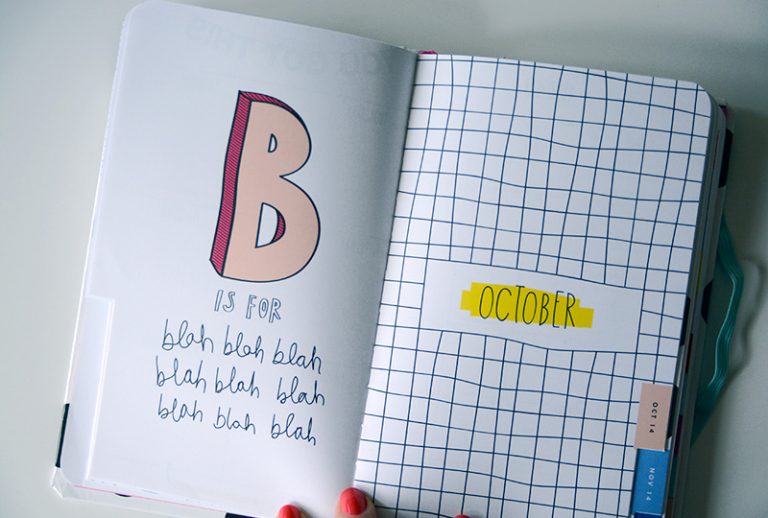 B
IS FOR
blah blah blah
blah blah blah
blah blah blah
OCTOBER
OCT 14
NOV 14